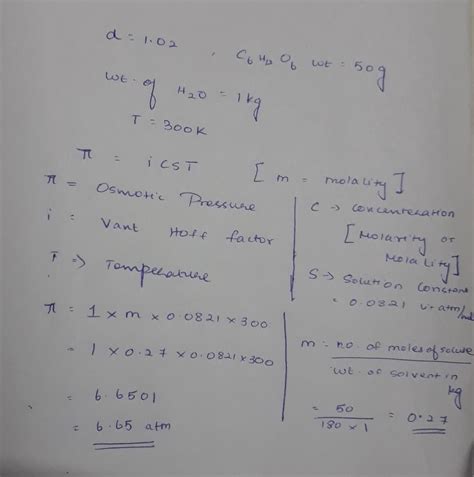 d = 1.02 , C6H12O6 wt = 50g
wt. of H2O = 1kg
T = 300K
π = iCST [m = molality]
π = Osmotic Pressure
i = Vant Hoff factor
T => Temperature
C → Concentration
[Molarity or
Molality]
S → Solution Constant
= 0.0821
π = 1 x m x 0.0821 x 300
= 1 x 0.27 x 0.0821 x 300
= 6.6501
= 6.65 atm
m = no. of moles of solute
wt. of solvent in
kg
= 50
180 x 1
= 0.27